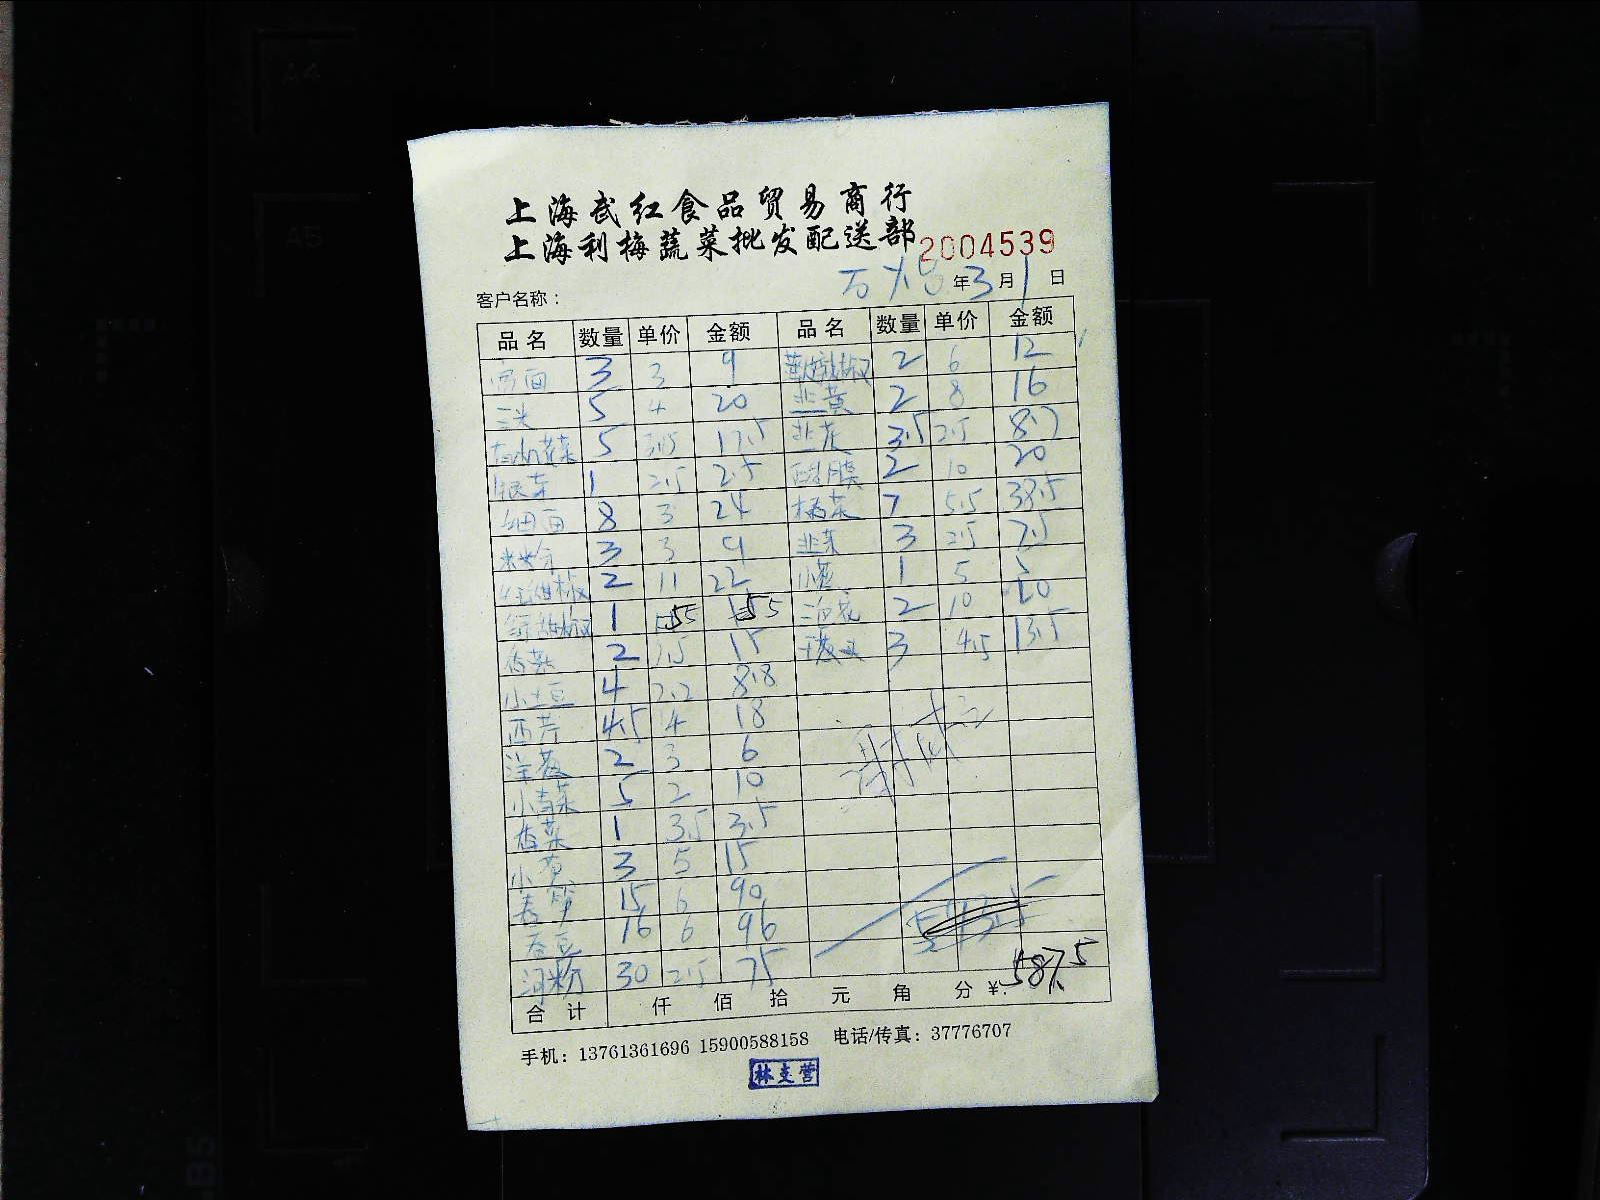 上海武红食品贸易商行
上海利梅蔬菜批发配送部 2004539
年3月1日
客户名称：
品名 数量 单价 金额 品名 数量 单价 金额
3 3 9 2 6 12
5 4 20 韭黄 2 8 16
有机花菜 5 3.5 17.5 韭花 3.5 2.5 8.7
银芽 1 2.5 2.5 2 10 20
细面 8 3 24 7 5.5 38.5
3 3 9 韭菜 3 2.5 7.5
2 11 22 小葱 1 5 5
1 55 55 2 10 20
2 7.5 15 3 4.5 13.5
小土豆 4 2.2 8.8
西芹 4.5 4 18
2 3 6
小青菜 5 2 10
香菜 1 3.5 3.5
3 5 15
春笋 15 6 90
16 6 96
河粉 30 2.5 75
合计 仟 佰 拾 元 角 分 ¥: 587.5
手机：13761361696 15900588158 电话/传真：37776707
林支营